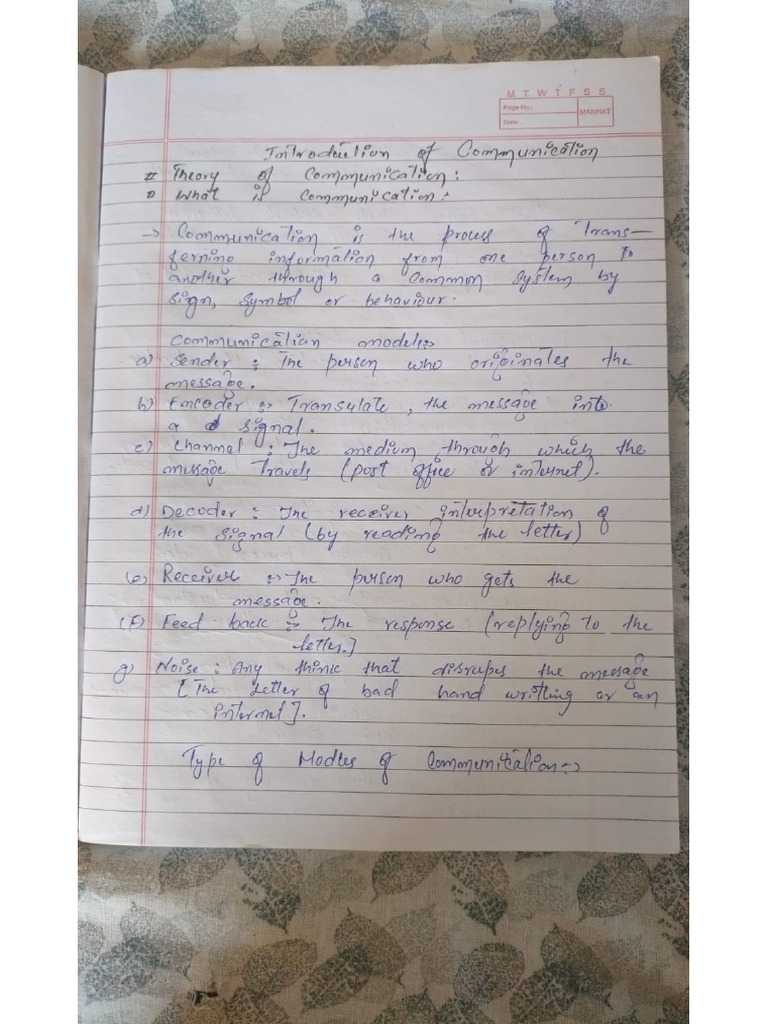 M T W T F S S
Page No.:
MANNAT
Date:
Introduction of Communication
# Theory of Communication:
What is Communication:
→ Communication is the process of Trans-
ferning information from one person to
another through a common system by
sign, symbol or behaviour.
Communication models:-
a) Sender: The person who originates the
message.
b) Encoder :- Translate, the message into
a signal.
c) Channel: The medium through which the
message Travels (post office or internet).
d) Decoder: The receiver interpretation of
the signal (by reading the letter)
(e) Receiver :- The person who gets the
message.
(f) Feed back :- The response (replying to the
letter.]
g) Noise: Any thinic that disrupes the message
[The Letter of bad hand writting or an
internet].
Type of Modles of Communication:-